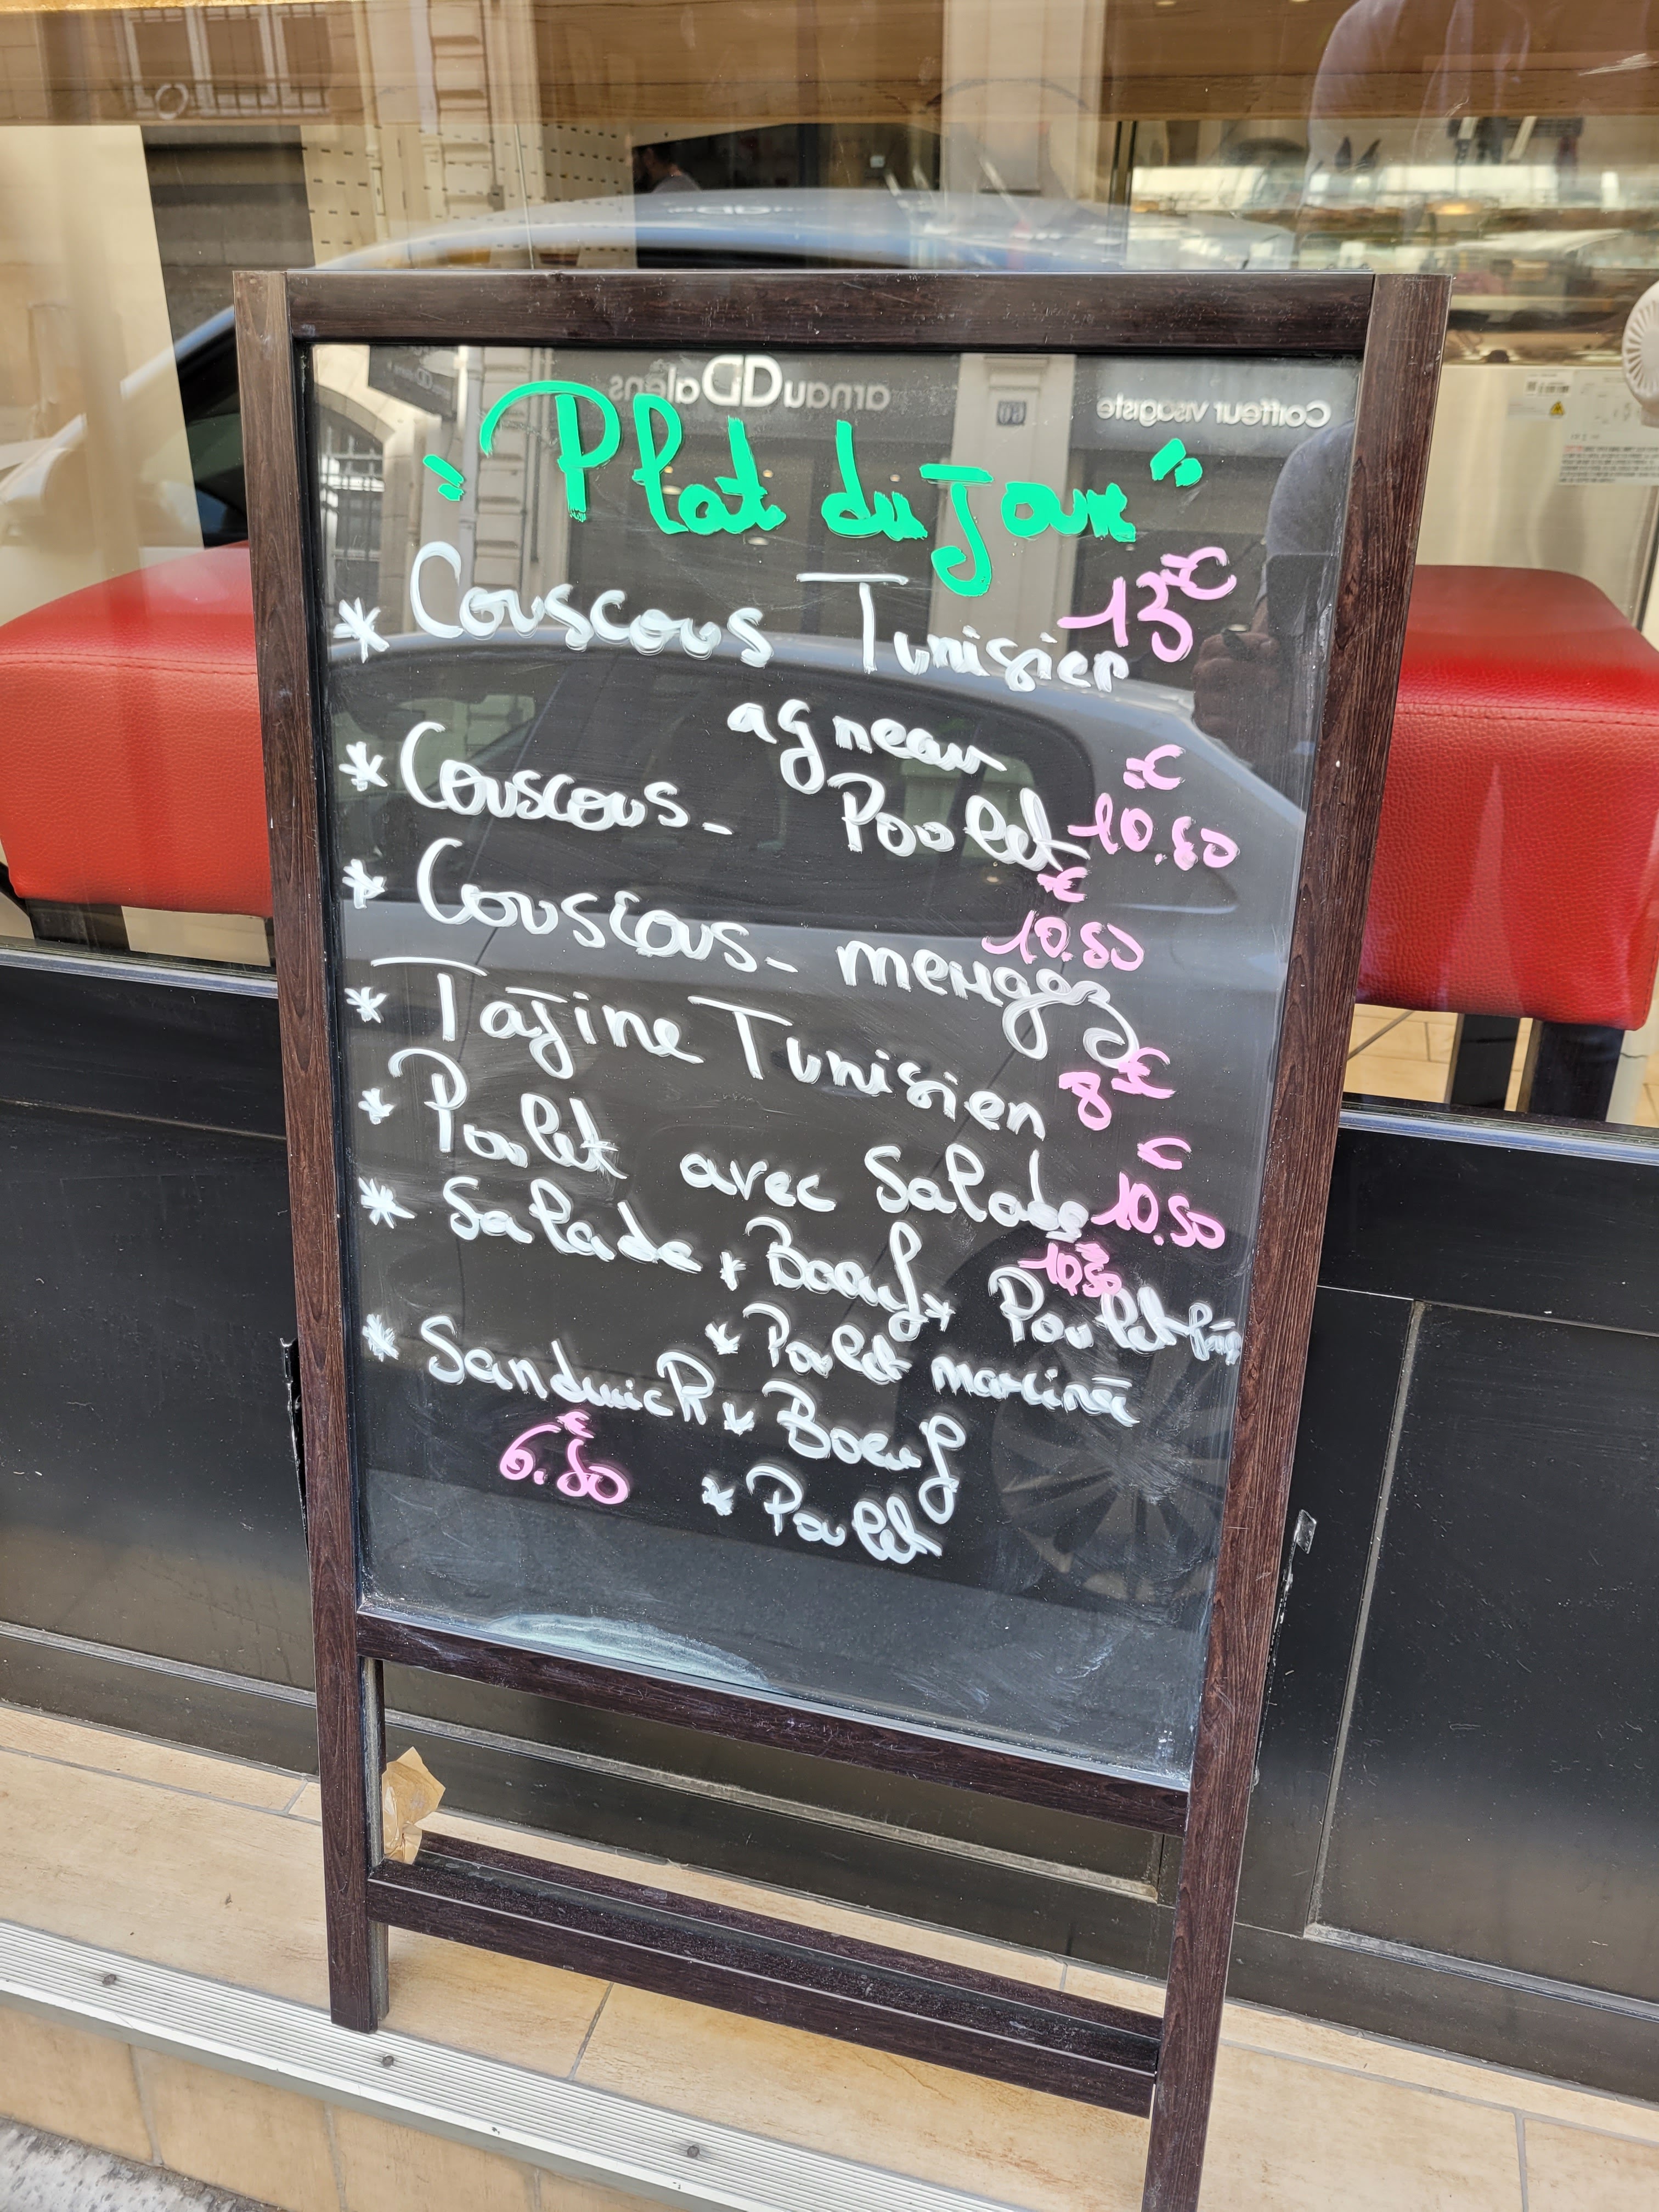 arnauDDalens
Coiffeur visagiste
60
" Plat du Jour "
* Couscous Tunisien 13€
agneau
* Couscous - Poulet 10.50€
* Couscous - merguez 10.50€
* Tajine Tunisien 8€
* Poulet avec Salade 10.50€
* Salade * Boeuf * Poulet 10.50
* Poulet mariné
* Sandwich * Boeuf
6.50€ * Poulet